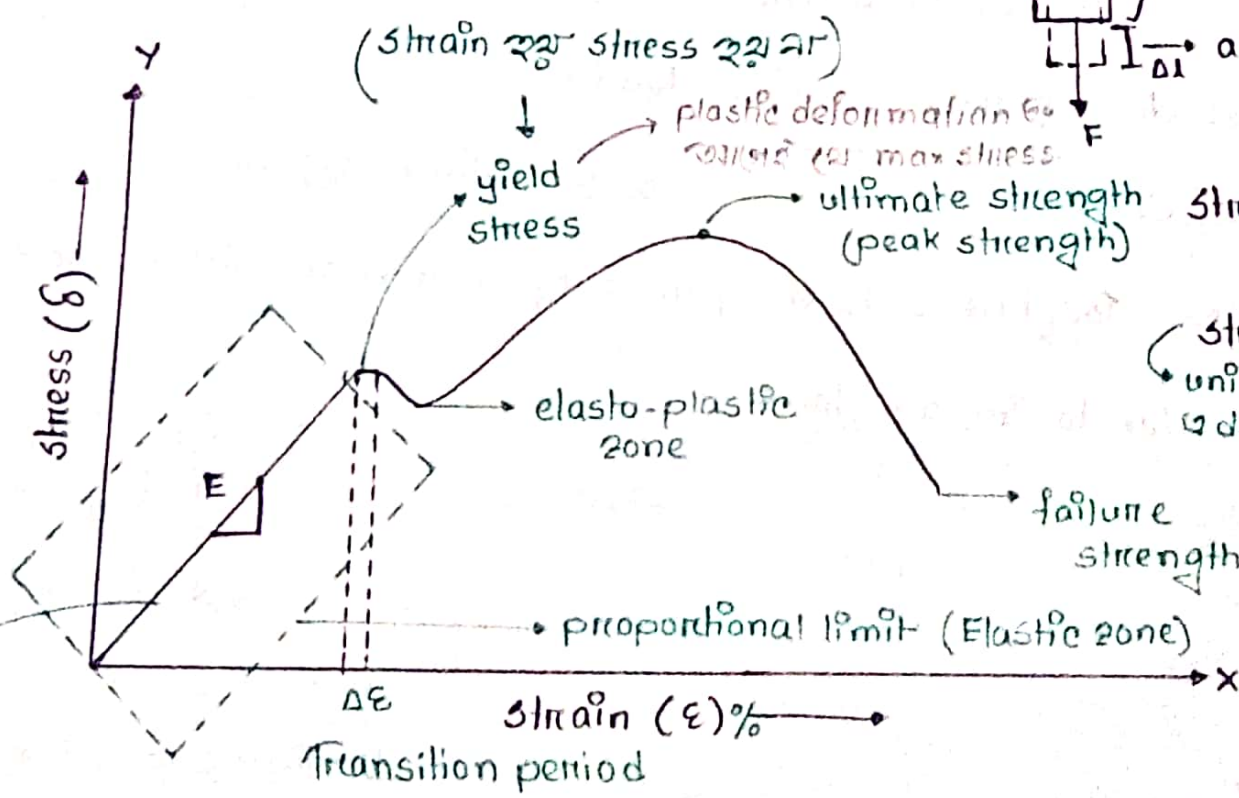 (strain হয় stress হয় না)
Δl
a
F
plastic deformation এর
আগের যে max stress
yield
stress
ultimate strength
(peak strength)
Str
Y
Stress (δ)
St
uni
elasto-plastic
zone
E
failure
strength
proportional limit (Elastic zone)
X
Δε
Strain (ε)%
Transition period